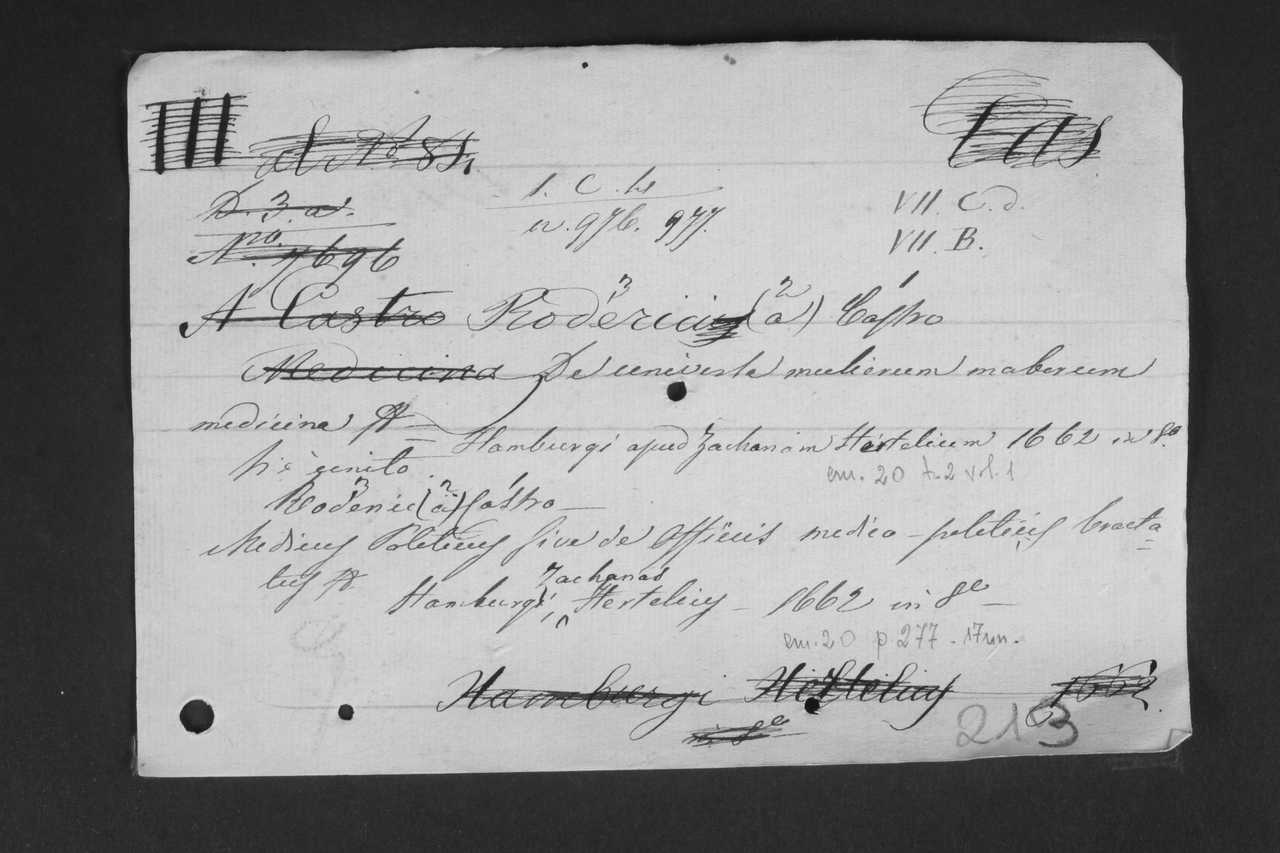 III
Cas
D. 3. a.
1. C. h
VII. C. d.
No. 7696
n. 976. 977.
VII. B.
A Castro Roderici (a) Castro
3 2 1
Medicina De universa mulierum maborum
medicina
Hamburgi apud Zachariam Hertelium 1662 in 8o
em. 20 t. 2 vol. 1
Roderic (a) Castro
3 2 1
Medicus Politicus sive de officiis medico-politicis tracta
tus
Hamburgi Zacharias Hertelius 1662 in 8o
em. 20 p 277.
Hamburgi Hertelius 1662
in 8o
213